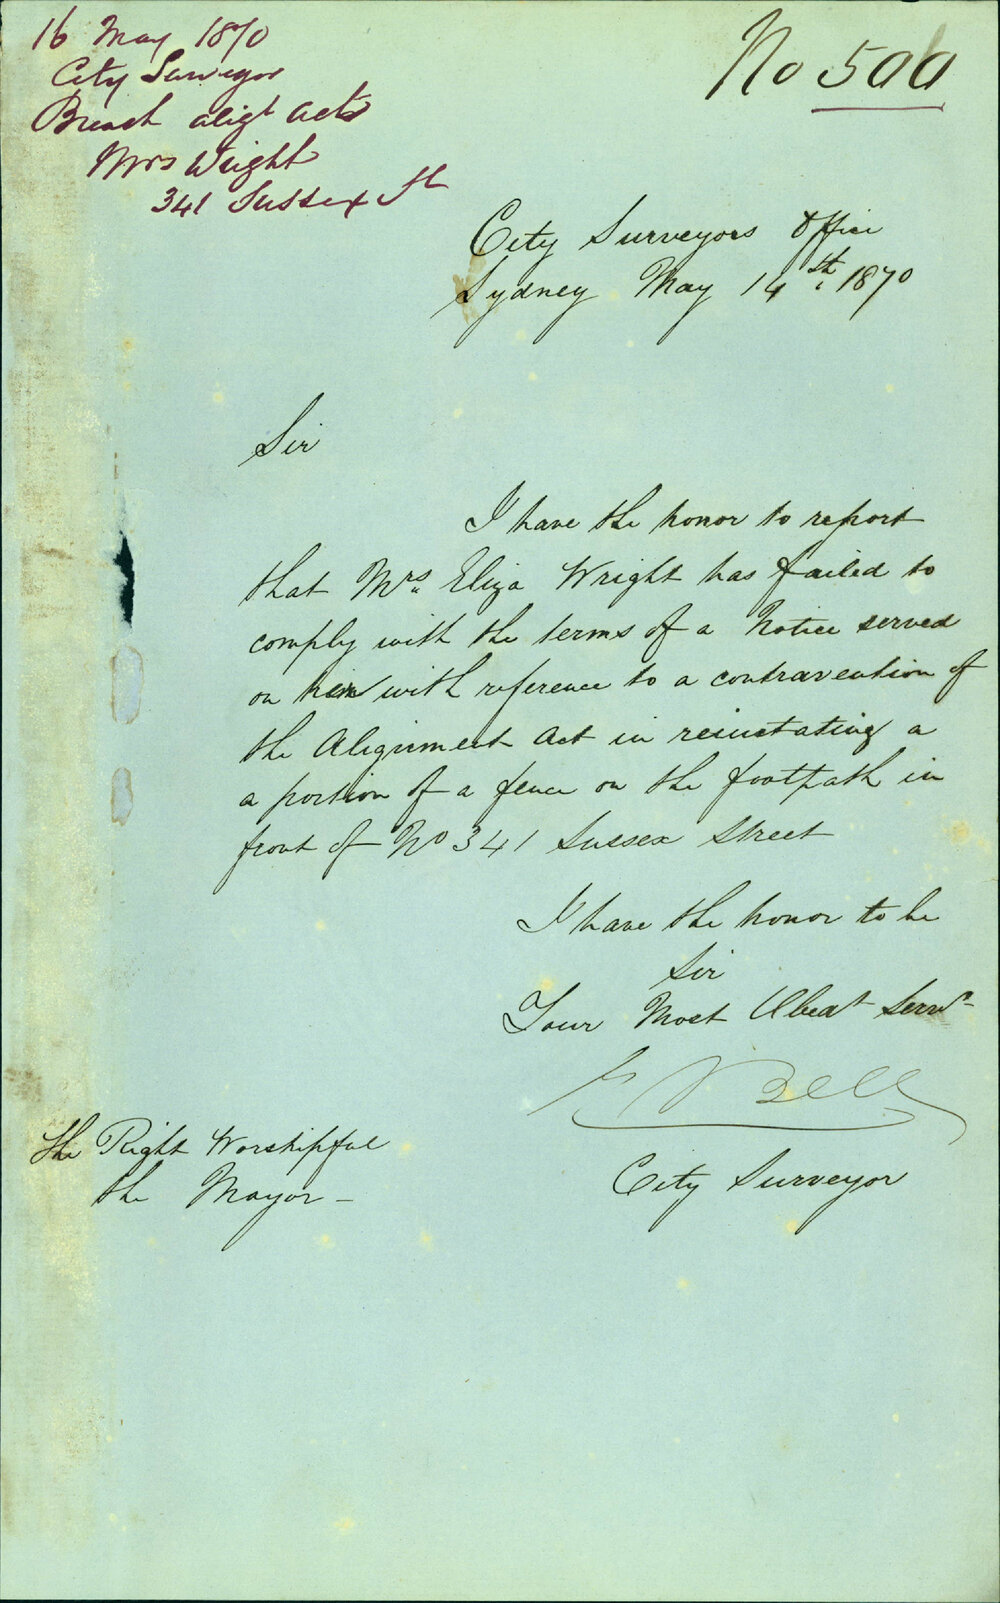 16 May 1870
City Surveyor
Breach aligt acts
Mrs Wright
341 Sussex St
No 500
City Surveyors Office
Sydney May 14th. 1870
Sir
I have the honor to report
that Mrs. Eliza Wright has failed to
comply with the terms of a Notice served
on her with reference to a contravention of
the Alignment Act in reinstating a
a portion of a fence on the footpath in
front of No 341 Sussex Street
I have the honor to be
Sir
Your Most Obedt Servt
Bell
City Surveyor
The Right Worshipful
the Mayor —